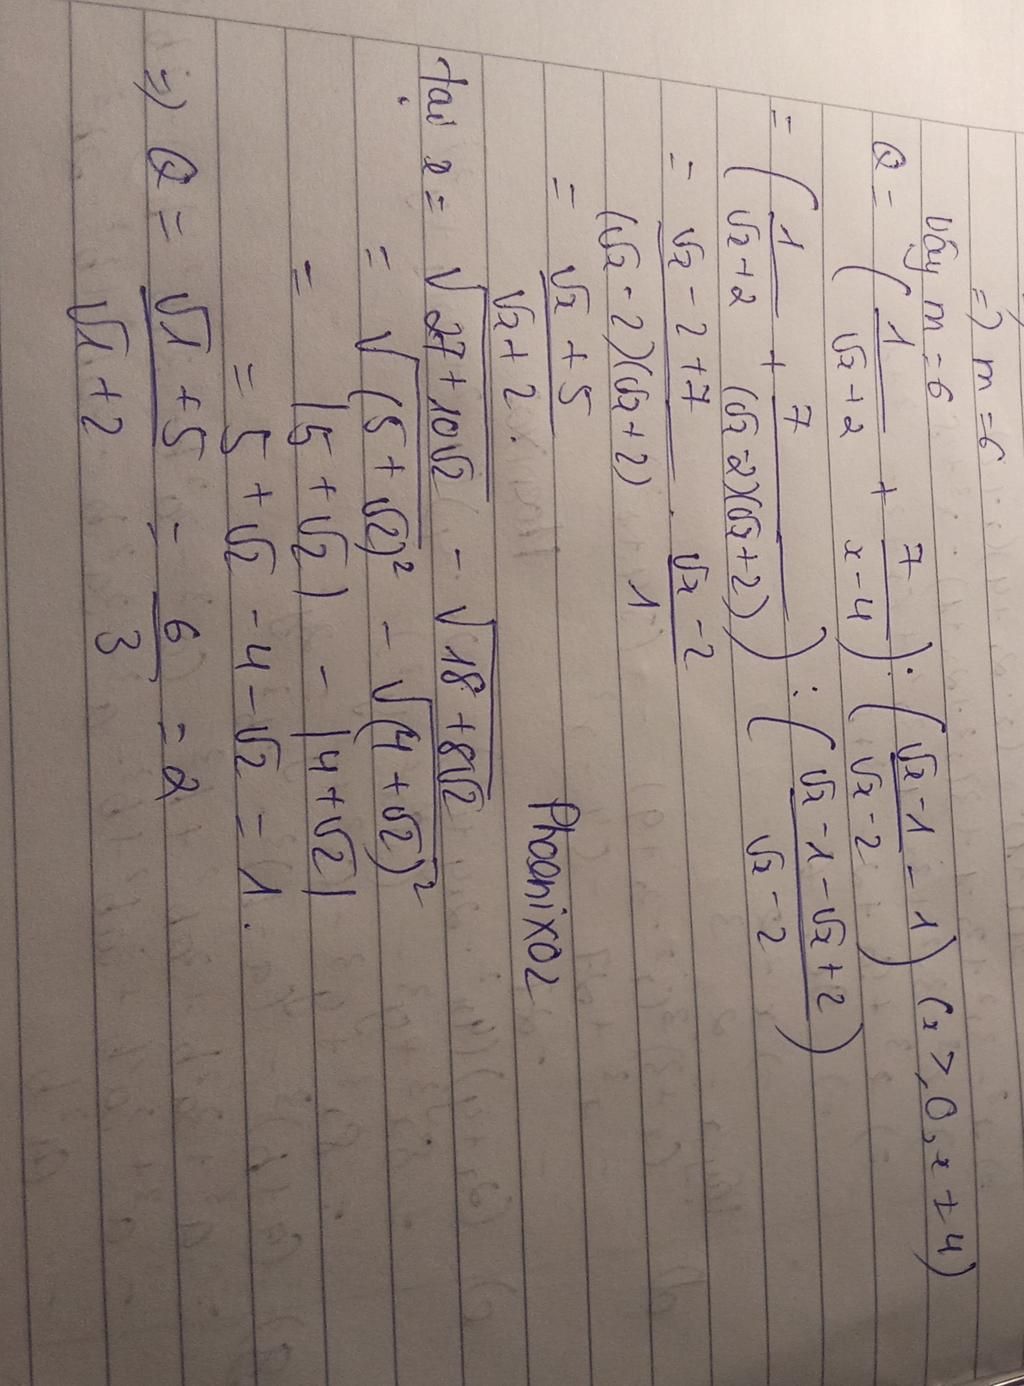 =) m = 6
Vậy m = 6
Q = (1/(√x + 2) + 7/(x - 4)) : ((√x - 1)/(√x - 2) - 1) (x ≥ 0, x ≠ 4)
= (1/(√x + 2) + 7/((√x - 2)(√x + 2))) : ((√x - 1 - √x + 2)/(√x - 2))
= (√x - 2 + 7)/((√x - 2)(√x + 2)) . (√x - 2)/1
= (√x + 5)/(√x + 2) .
Phoenix02
tại x = √(27 + 10√2) - √(18 + 8√2)
= √((5 + √2)²) - √((4 + √2)²)
= |5 + √2| - |4 + √2|
= 5 + √2 - 4 - √2 = 1.
=) Q = (√1 + 5)/(√1 + 2) = 6/3 = 2